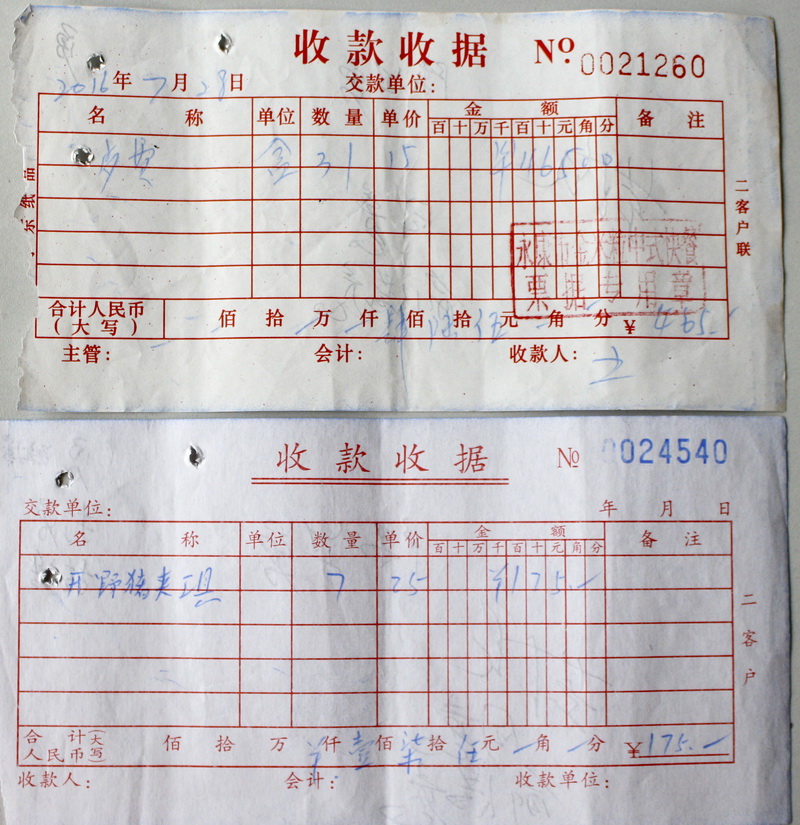 收款收据 No. 0021260
2016年7月29日 交款单位:
名 称 单位 数量 单价 金额 备注
百十万千百十元角分
盒 31 15 ¥46500
二客户联
永康市金大 中式快餐
票据专用章
合计人民币(大写) 佰 拾 万 仟 肆佰 陆拾 伍元 角 分 ¥ 465.-
主管: 会计: 收款人:
收款收据 No 0024540
交款单位: 年 月 日
名 称 单位 数量 单价 金额 备注
百十万千百十元角分
开野猪夹工具 7 25 ¥175.-
二客户
合计人民币(大写) 佰 拾 万 仟 壹佰 柒拾 伍元 角 分 ¥175.-
收款人: 会计: 收款单位: